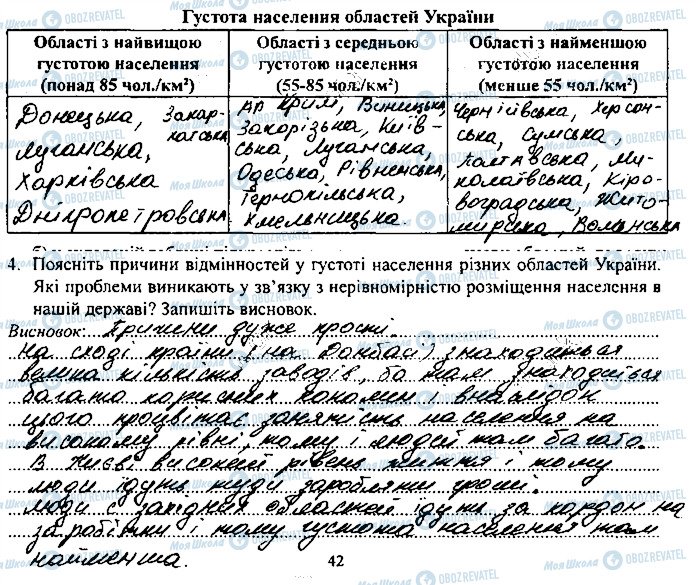 Густота населення областей України
Області з найвищою
густотою населення
(понад 85 чол./км²)
Області з середньою
густотою населення
(55-85 чол./км²)
Області з найменшою
густотою населення
(менше 55 чол./км²)
Донецька, Закар-
патська
Луганська,
Харківська
Дніпропетровська
АР Крим, Вінницька,
Запорізька, Київ-
ська, Луганська,
Одеська, Рівненська,
Тернопільська,
Хмельницька.
Чернігівська, Херсон-
ська, Сумська,
Полтавська, Ми-
колаївська, Кіро-
воградська, Жито-
мирська, Волинська
4. Поясніть причини відмінностей у густоті населення різних областей України.
Які проблеми виникають у зв’язку з нерівномірністю розміщення населення в
нашій державі? Запишіть висновок.
Висновок: Причини дуже прості.
На сході країни (на Донбасі) знаходиться
велика кількість заводів, бо там знаходиться
багато корисних копалин і внаслідок
цього процвітає зайнятість населення на
високому рівні, тому і людей там багато.
В Києві високий рівень життя і тому
люди ідуть туди заробляти гроші.
Люди с західних областей ідуть за кордон на
заробітки і тому густота населення там
найменша.
42